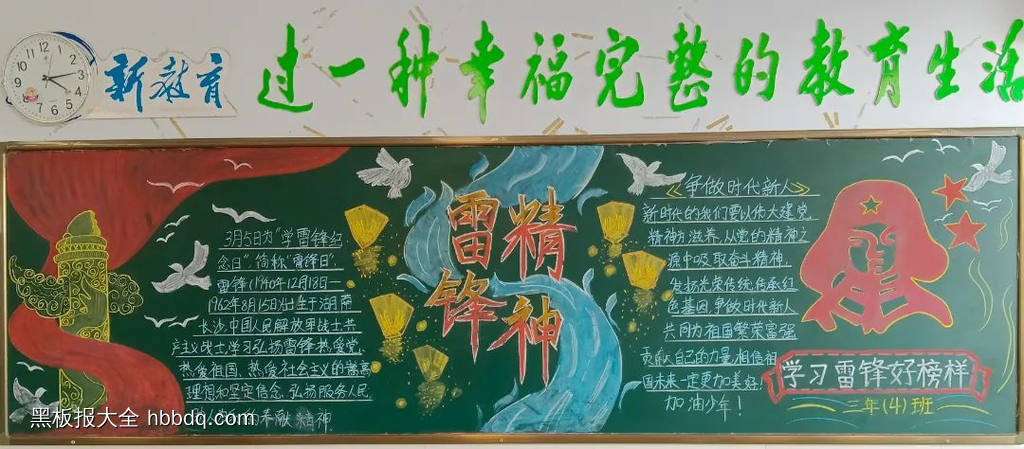 新教育
过一种幸福完整的教育生活
3月5日为"学雷锋纪
念日",简称"雷锋日".
雷锋(1940年12月18日—
1962年8月15日)出生于湖南
长沙中国人民解放军战士共
产主义战士学习弘扬雷锋热爱党
热爱祖国、热爱社会主义的崇高
理想和坚定信念,弘扬服务人民
奉献精神
雷锋
精神
《争做时代新人》
新时代的我们要以伟大建党
精神为滋养,从党的精神之
源中吸取奋斗精神.
发扬光荣传统传承红
色基因,争做时代新人
共同为祖国繁荣富强
贡献自己的力量相信祖
国未来一定更加美好!
加油少年!
学习雷锋好榜样
三年(4)班
黑板报大全 hbbdq.com